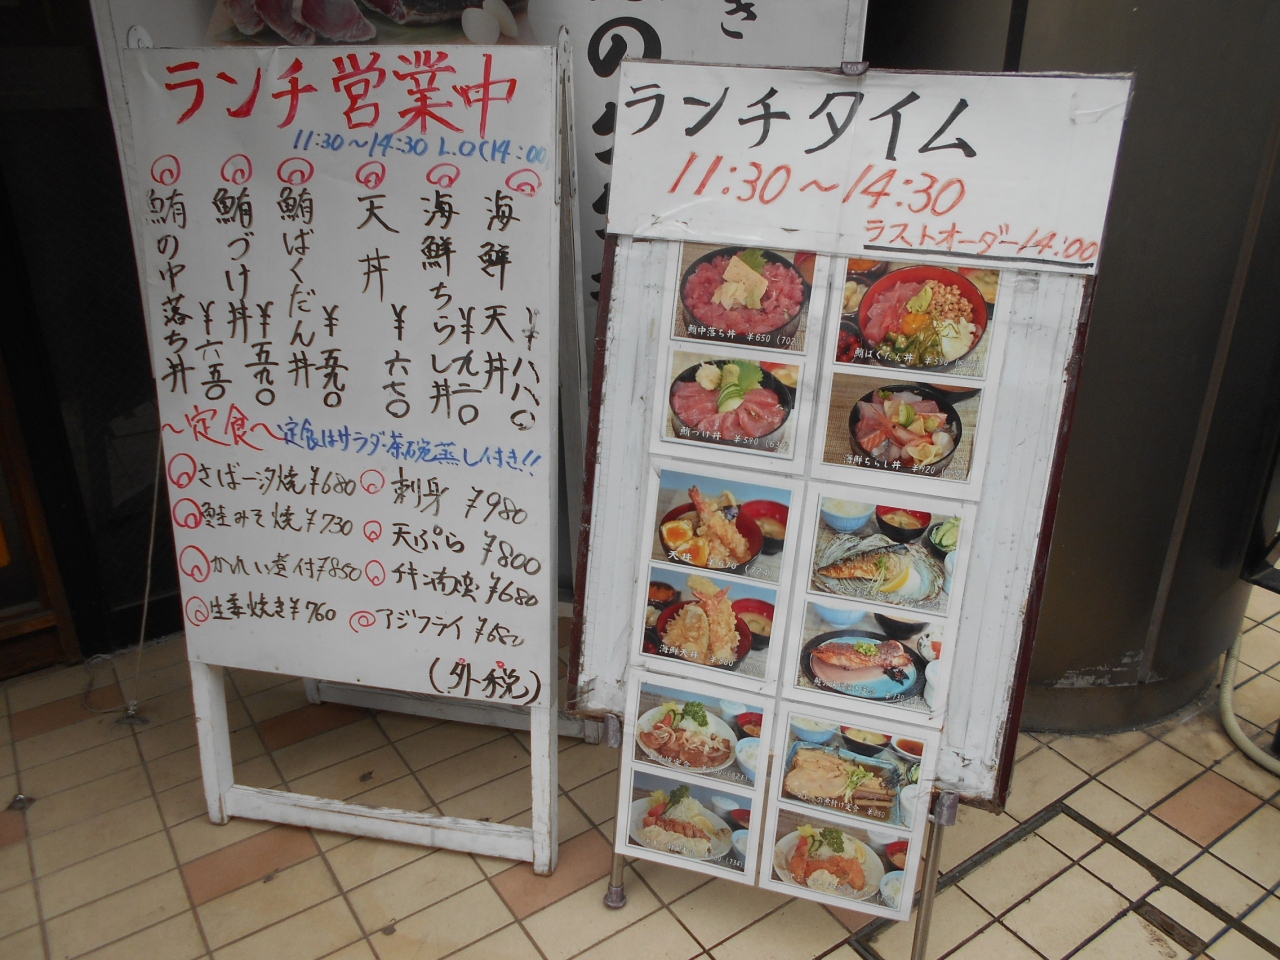 ランチ営業中
11:30～14:30 L.O(14:00
海鮮天丼 ¥八八〇
海鮮ちらし丼 ¥九二〇
天丼 ¥六七〇
鮪ばくだん丼 ¥五九〇
鮪づけ丼 ¥五九〇
鮪の中落ち丼 ¥六五〇
～定食～ 定食はサラダ茶碗蒸し付き!!
さば一汐焼 ¥680
刺身 ¥980
鮭みそ焼 ¥730
天ぷら ¥800
かれい煮付 ¥850
チキン南蛮 ¥680
生姜焼き ¥760
アジフライ ¥680
(外税)
き
の
ランチタイム
11:30～14:30
ラストオーダー14:00
鮪中落ち丼 ¥650 (702
鮪ばくだん丼 ¥590
鮪づけ丼 ¥590
海鮮ちらし丼 ¥920
天丼 ¥670
海鮮天丼 ¥880
¥730
煮付け定食 ¥850